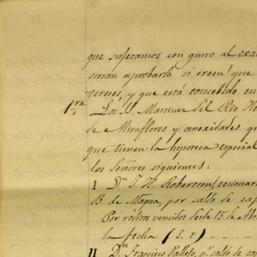 que sujetamos con quiro al exa
sirvan aprobarlo si creen que
terses, y que está concebido en
1ra Los SS. Martinez del Rio He
de Miraflores y anexidades, q
que tienen la hipoteca especial
los Señores siguientes:
I Dn. J. H. Robertson,
B. de Magua, por saldo de cap
Por réditos vencidos desde 15 de
la fecha (S. S)
II Dn. Francisco Vallejo, pr. saldo de ca